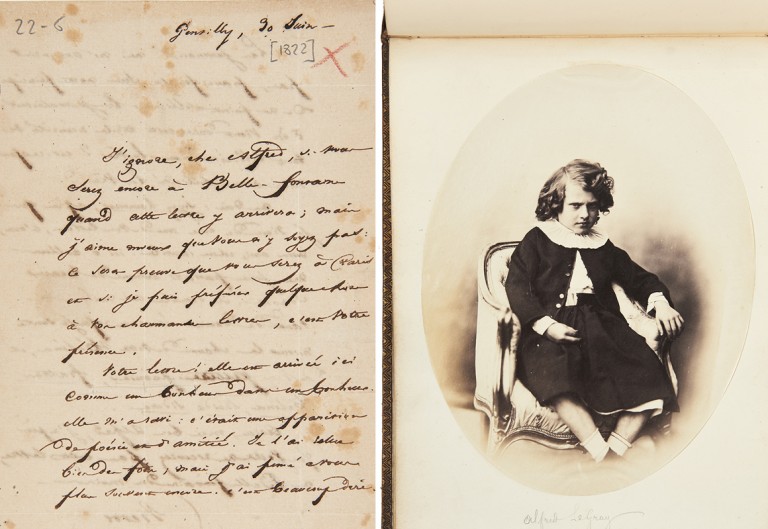 22-6
Gentilly, 30 Juin –
[1822]
J'ignore, cher Alfred, si vous
serez encore à Belle-fontaine
quand cette lettre y arrivera ; mais
j'aime mieux que vous n'y soyez pas :
ce sera preuve que vous serez à Paris
et si je puis préférer quelque chose
à vos charmantes lettres, c'est votre
présence.
Votre lettre ! elle est arrivée ici
comme un bonheur dans un bonheur.
elle m'a ravi : c'était une apparition
de poésie et d'amitié. Je l'ai relue
bien des fois, mais j'ai pensé à vous
plus souvent encore. c'est beaucoup dire.
alfred